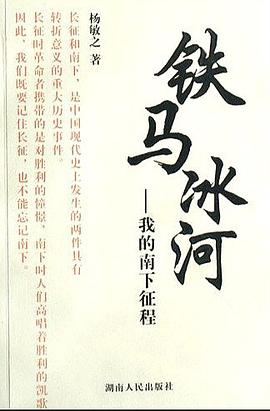 杨敏之 著
铁马冰河
——我的南下征程
长征和南下，是中国现代史上发生的两件具有
转折意义的重大历史事件。
长征时革命者携带的是对胜利的憧憬，南下时人们高唱着胜利的凯歌
因此，我们既要记住长征，也不能忘记南下。
湖南人民出版社